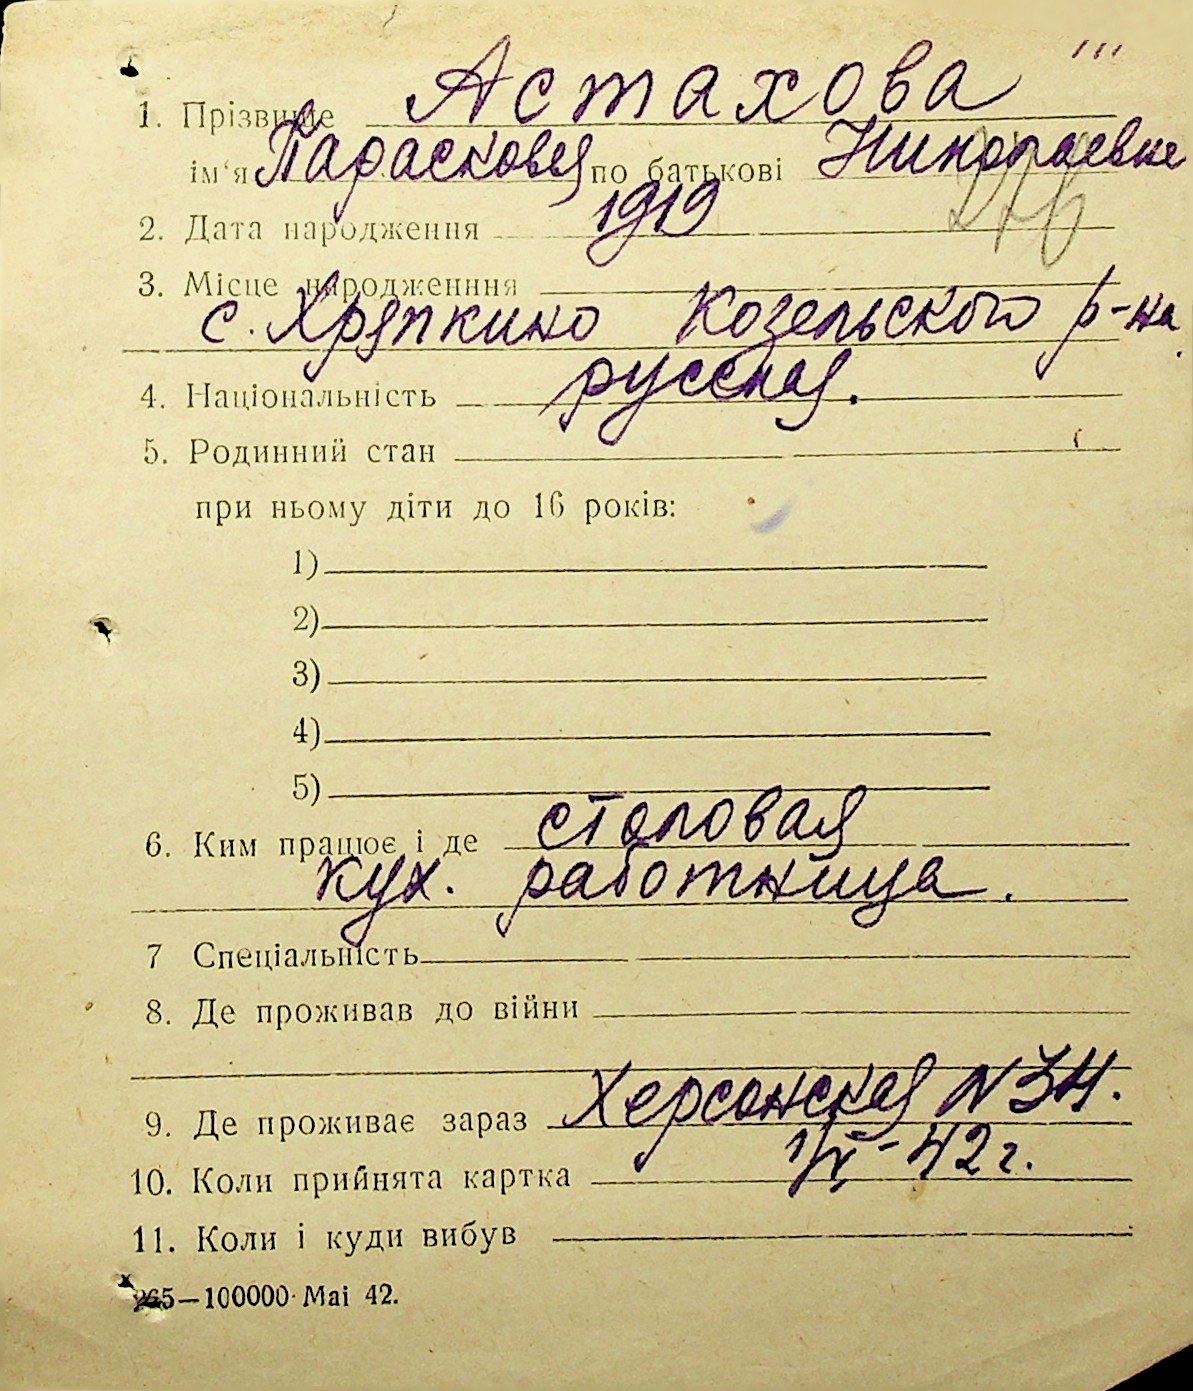 1. Прізвище Астахова
ім'я Парасковея по батькові Николаевна
2. Дата народження 1919
3. Місце народженння
с. Хряпкино Козельского р-на
4. Національність русская.
5. Родинний стан
при ньому діти до 16 років:
1)
2)
3)
4)
5)
6. Ким працює і де столовая
кух. работница.
7 Спеціальність
8. Де проживав до війни
9. Де проживає зараз Херсонская N 34.
10. Коли прийнята картка 1/X-42 г.
11. Коли і куди вибув
265—100000 Mai 42.